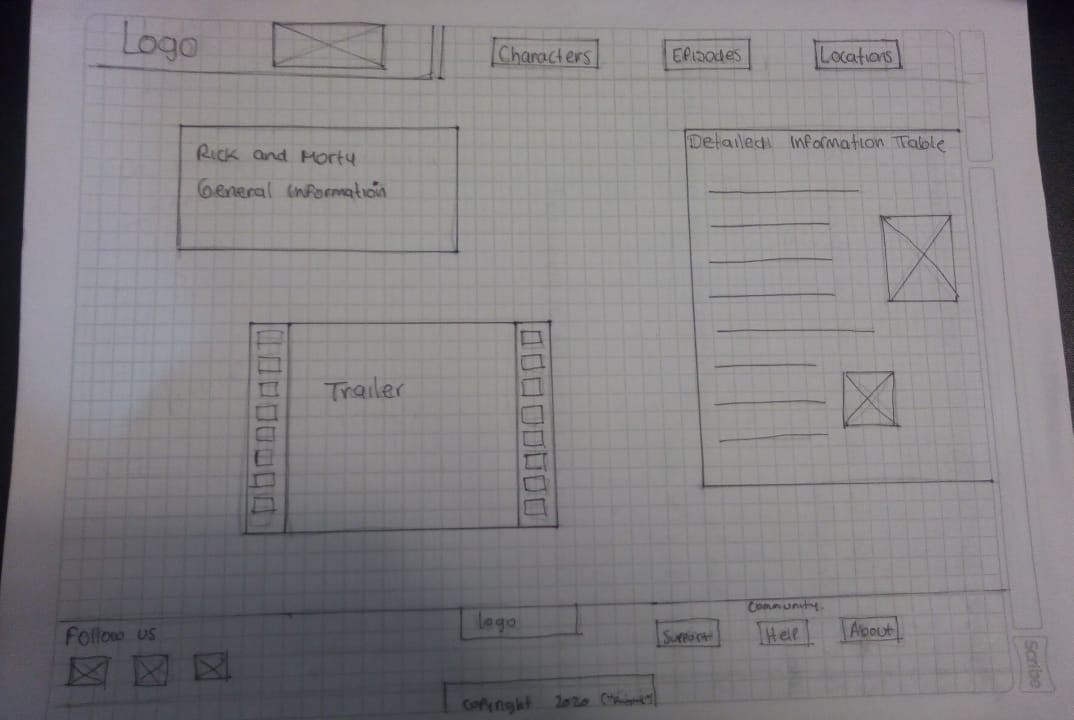 Logo
Characters
Episodes
Locations
Rick and Morty
General Information
Detailed Information Table
Trailer
Follow us
logo
Community.
Support
Help
About
copyright 2020
Scribe